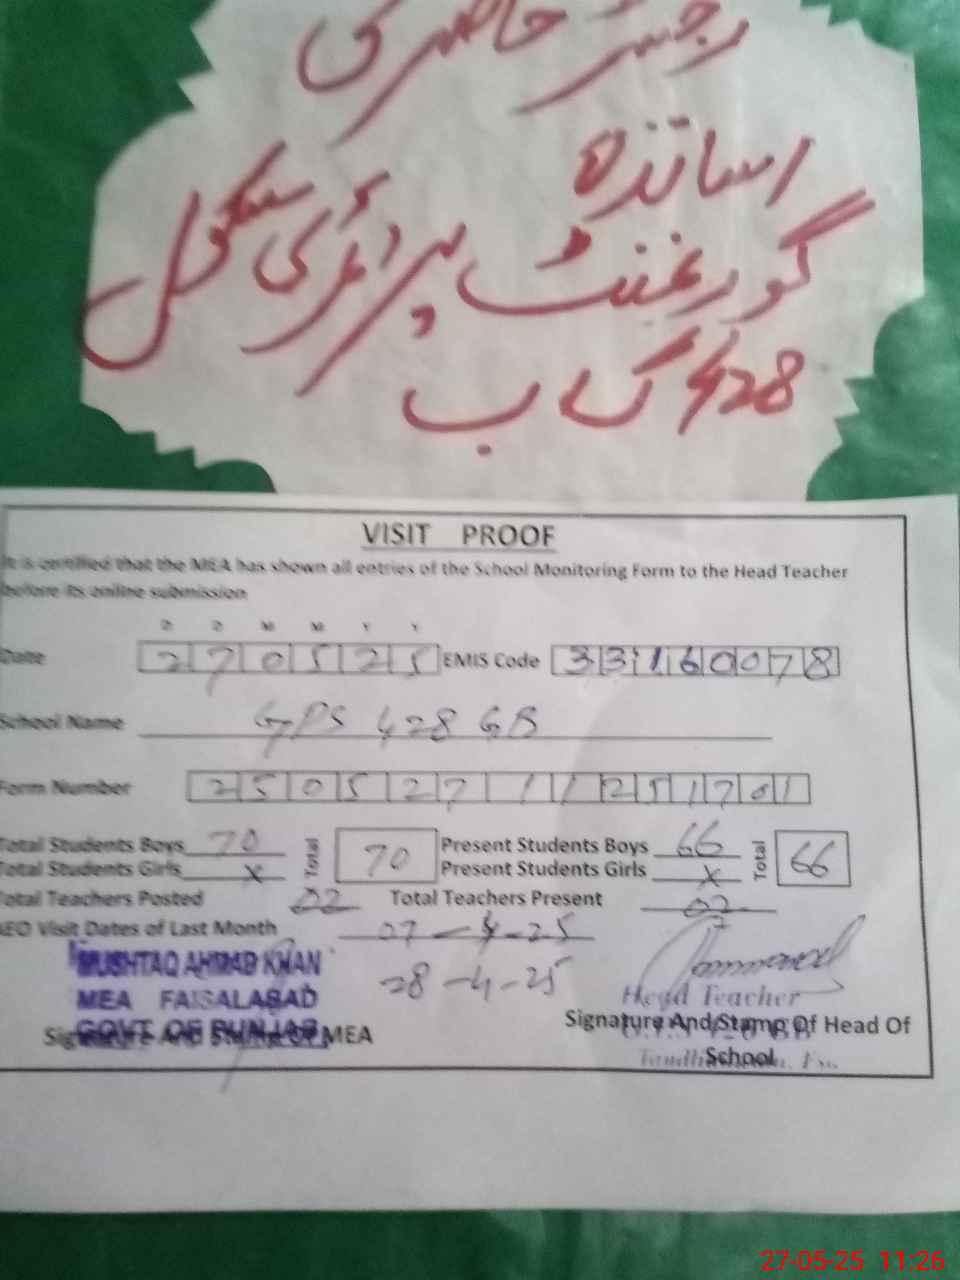 رجسٹر حاضری
اساتذہ
گورنمنٹ پرائمری سکول
428 گ ب
VISIT PROOF
It is certified that the MEA has shown all entries of the School Monitoring Form to the Head Teacher
before its online submission
D D M M Y Y
Date 2 7 0 5 2 5 EMIS Code 3 3 1 6 0 0 7 8
School Name GPS 428 GB
Form Number 2 5 0 5 2 7 1 1 2 5 1 7 0 1
Total Students Boys 70 Total 70 Present Students Boys 66 Total 66
Total Students Girls x Present Students Girls x
Total Teachers Posted 02 Total Teachers Present 02
AEO Visit Dates of Last Month 07-4-25
28-4-25
MUSHTAQ AHMAD KHAN
MEA FAISALABAD
GOVT OF PUNJAB
Signature And Stamp Of MEA
Head Teacher
Signature And Stamp Of Head Of
School
27-05-25 11:26